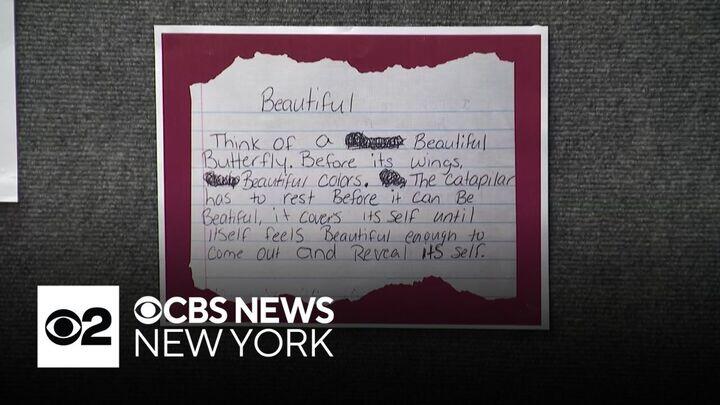 Beautiful
Think of a Beautiful
Butterfly. Before its wings,
Beautiful colors. The catapilar
has to rest Before it can Be
Beatiful, it covers its self until
itself feels Beautiful enough to
come out and Reveal its self.
2 CBS NEWS
NEW YORK